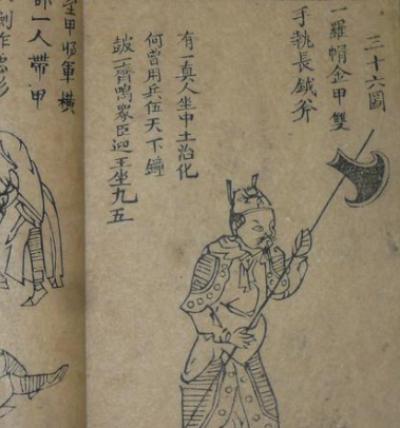 三十六圖
一羅帽金甲雙
手執長鉞斧
有一真人坐中土治化
何曾用兵伍天下鐘
皷一齊鳴眾臣迎王坐九五
甲將軍橫
一人帶甲